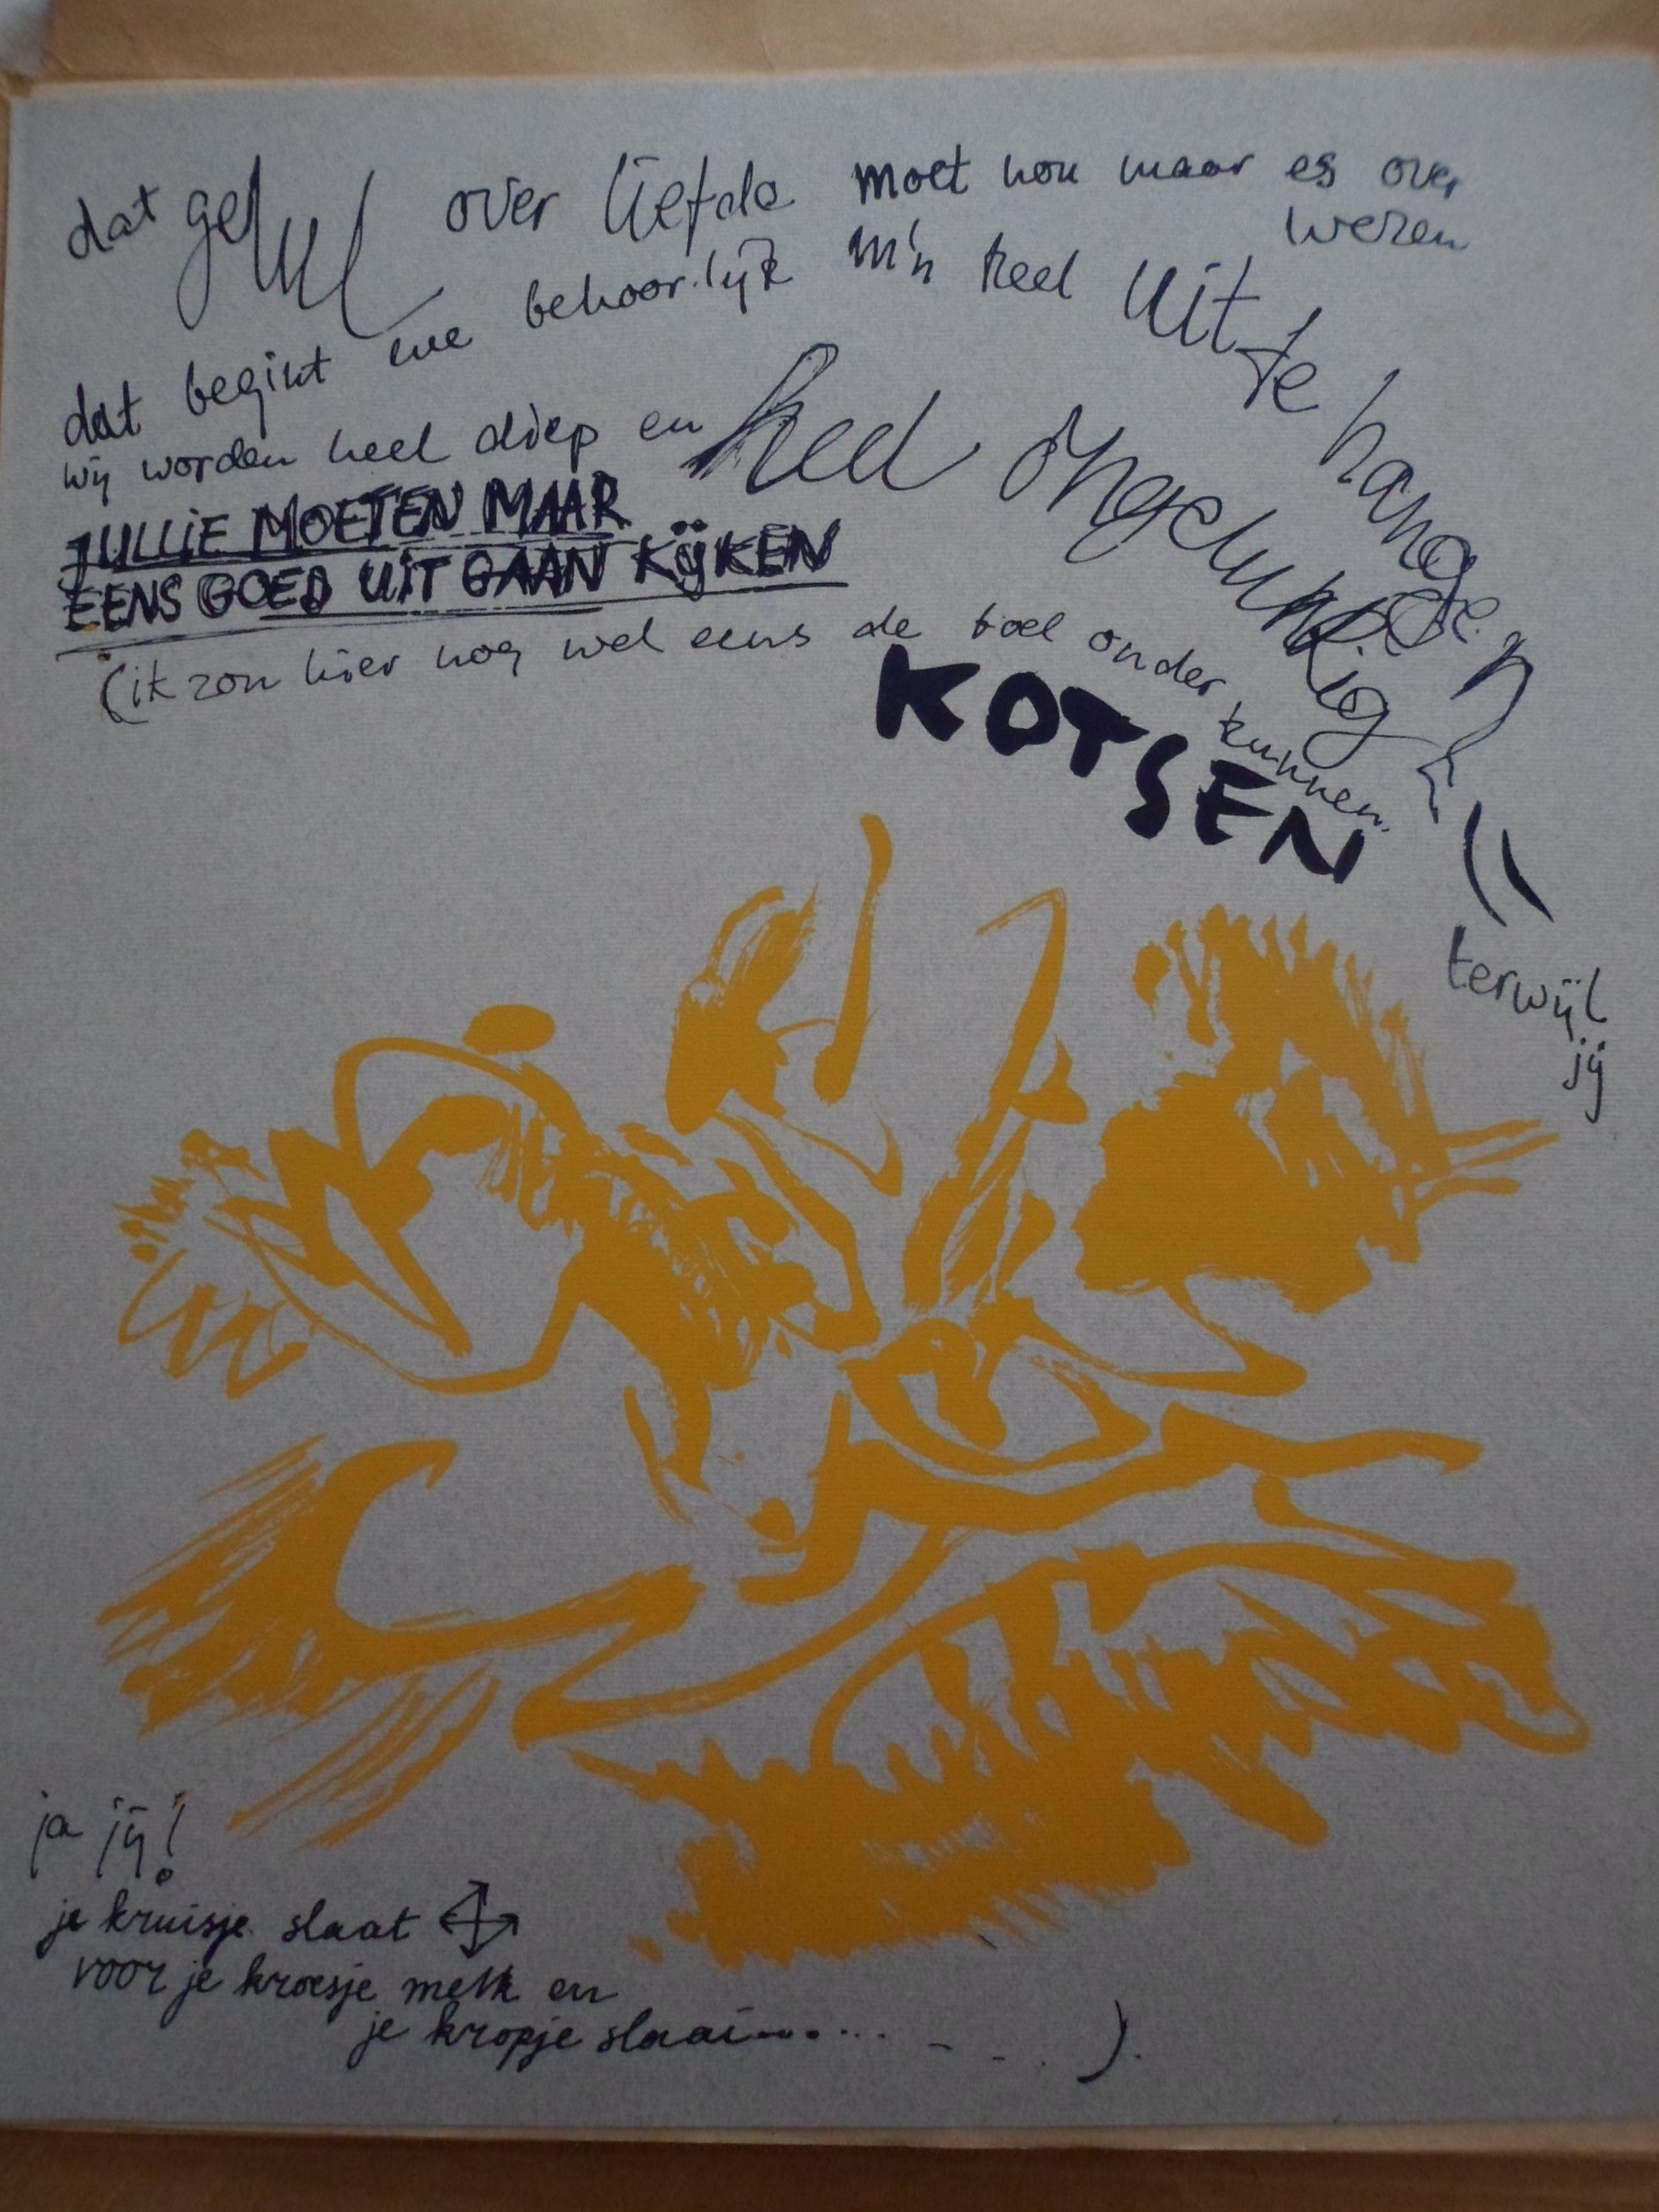 dat gelul over liefde moet nou maar es over
wezen
dat begint me behoorlijk m'n keel uit te hangen
wij worden heel diep en heel ongelukkig
JULLIE MOETEN MAAR
EENS GOED UIT GAAN KIJKEN
(ik zou hier nog wel eens de boel onder
KOTSEN
kunnen.
terwijl
jij
ja jij!
je kruisje slaat
voor je kroesje melk en
je kropje slaai......... - - . ).